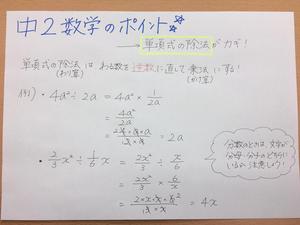 中2数学のポイント
→ 単項式の除法がカギ!
単項式の除法は わる数を逆数に直して乗法にする!
(わり算) (かけ算)
例) ・ 4a² ÷ 2a = 4a² × 1/2a
= 4a²/2a
= 2×2×a×a/2×a = 2a
・ 2/3 x² ÷ 1/6 x = 2x²/3 ÷ x/6
= 2x²/3 × 6/x
= 2×x×x×6/3×x = 4x
分数のときは、文字が
分母・分子のどちらに
いるか注意しよう!